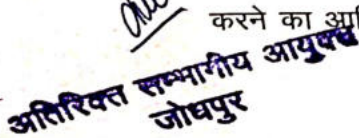 करने का
अतिरिक्त सम्भागीय आयुक्त
जोधपुर